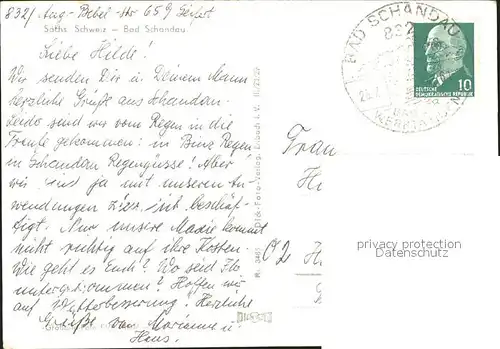 832/ Aug-Bebel-Str 65 g Seifert
Sächs. Schweiz — Bad Schandau
Liebe Hilde!
Wir senden Dir u. Deinem Mann
herzliche Grüße aus Schandau.
Leider sind wir vom Regen in die
Traufe gekommen: in Binz Regen
in Schandau Regengüsse! Aber
wir sind ja mit unseren An-
wendungen hier gut beschäf-
tigt. Nur unsere Mädie kommt
nicht richtig auf ihre Kosten.
Wie geht es Euch? Wo seid Ihr
untergekommen? Hoffen wir
auf Wetterbesserung! Herzliche
Grüße von Marianne u.
Hans.
BAD SCHANDAU
832
10
DEUTSCHE
DEMOKRATISCHE REPUBLIK
Frau
privacy protection
DatenSchutz